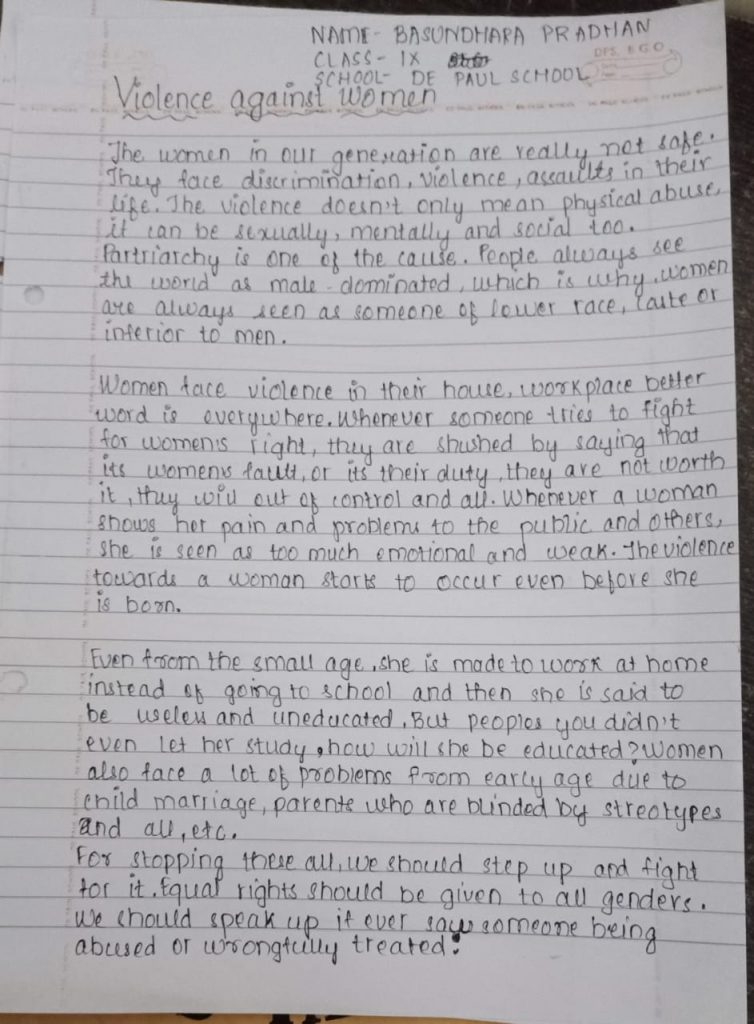 NAME- BASUNDHARA PRADHAN
CLASS- IX
DPS, EGO
SCHOOL- DE PAUL SCHOOL
Violence against women
The women in our generation are really not safe.
They face discrimination, violence, assaults in their
life. The violence doesn't only mean physical abuse,
it can be sexually, mentally and social too.
Partriarchy is one of the cause. People always see
the world as male-dominated, which is why, women
are always seen as someone of lower race, caste or
inferior to men.
Women face violence in their house, workplace better
word is everywhere. Whenever someone tries to fight
for women's right, they are shushed by saying that
its womens fault, or its their duty, they are not worth
it, they will out of control and all. Whenever a woman
shows her pain and problems to the public and others,
she is seen as too much emotional and weak. The violence
towards a woman starts to occur even before she
is born.
Even from the small age, she is made to work at home
instead of going to school and then she is said to
be useless and uneducated. But peoples you didn't
even let her study, how will she be educated? Women
also face a lot of problems from early age due to
child marriage, parents who are blinded by streotypes
and all, etc.
For stopping these all, we should step up and fight
for it. Equal rights should be given to all genders.
We should speak up if ever saw someone being
abused or wrongfully treated.